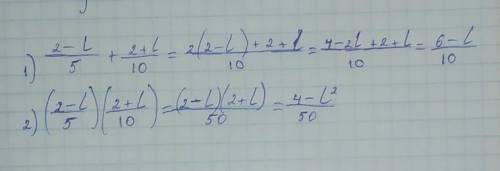 1) (2-l)/5 + (2+l)/10 = (2(2-l)+2+l)/10 = (4-2l+2+l)/10 = (6-l)/10
2) ((2-l)/5)((2+l)/10) = ((2-l)(2+l))/50 = (4-l²)/50